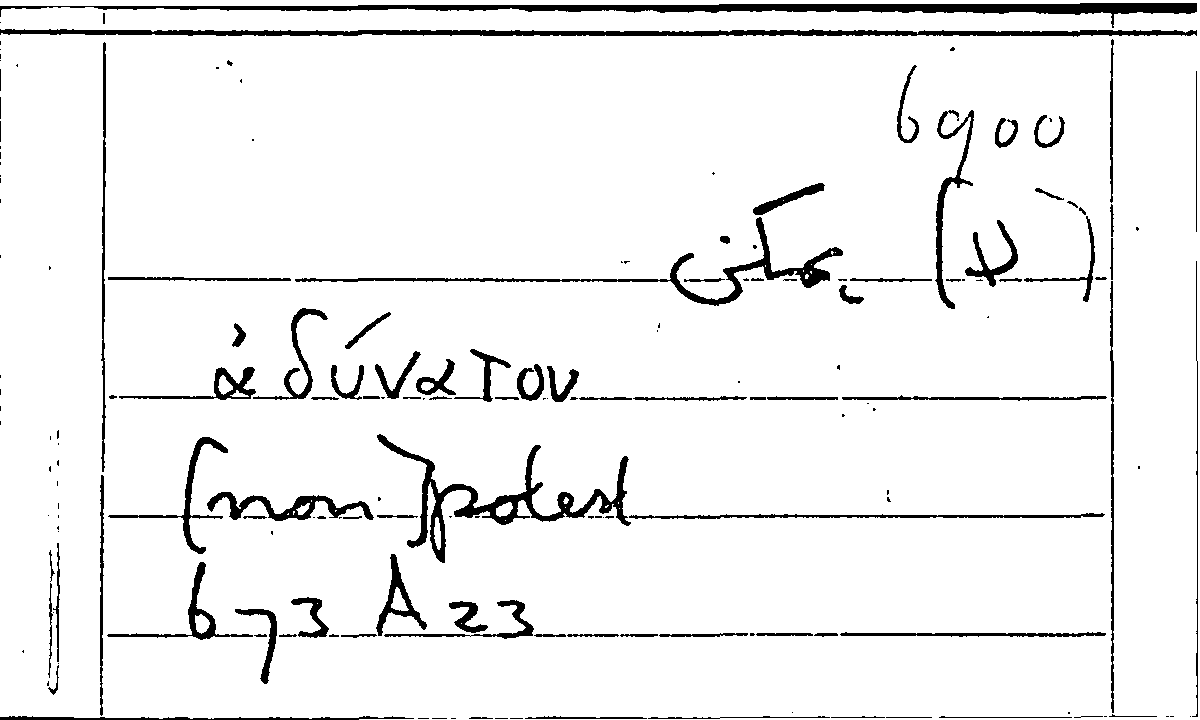 6900
(لا) يمكن
ἀδύνατον
(non) potest
673 A 23